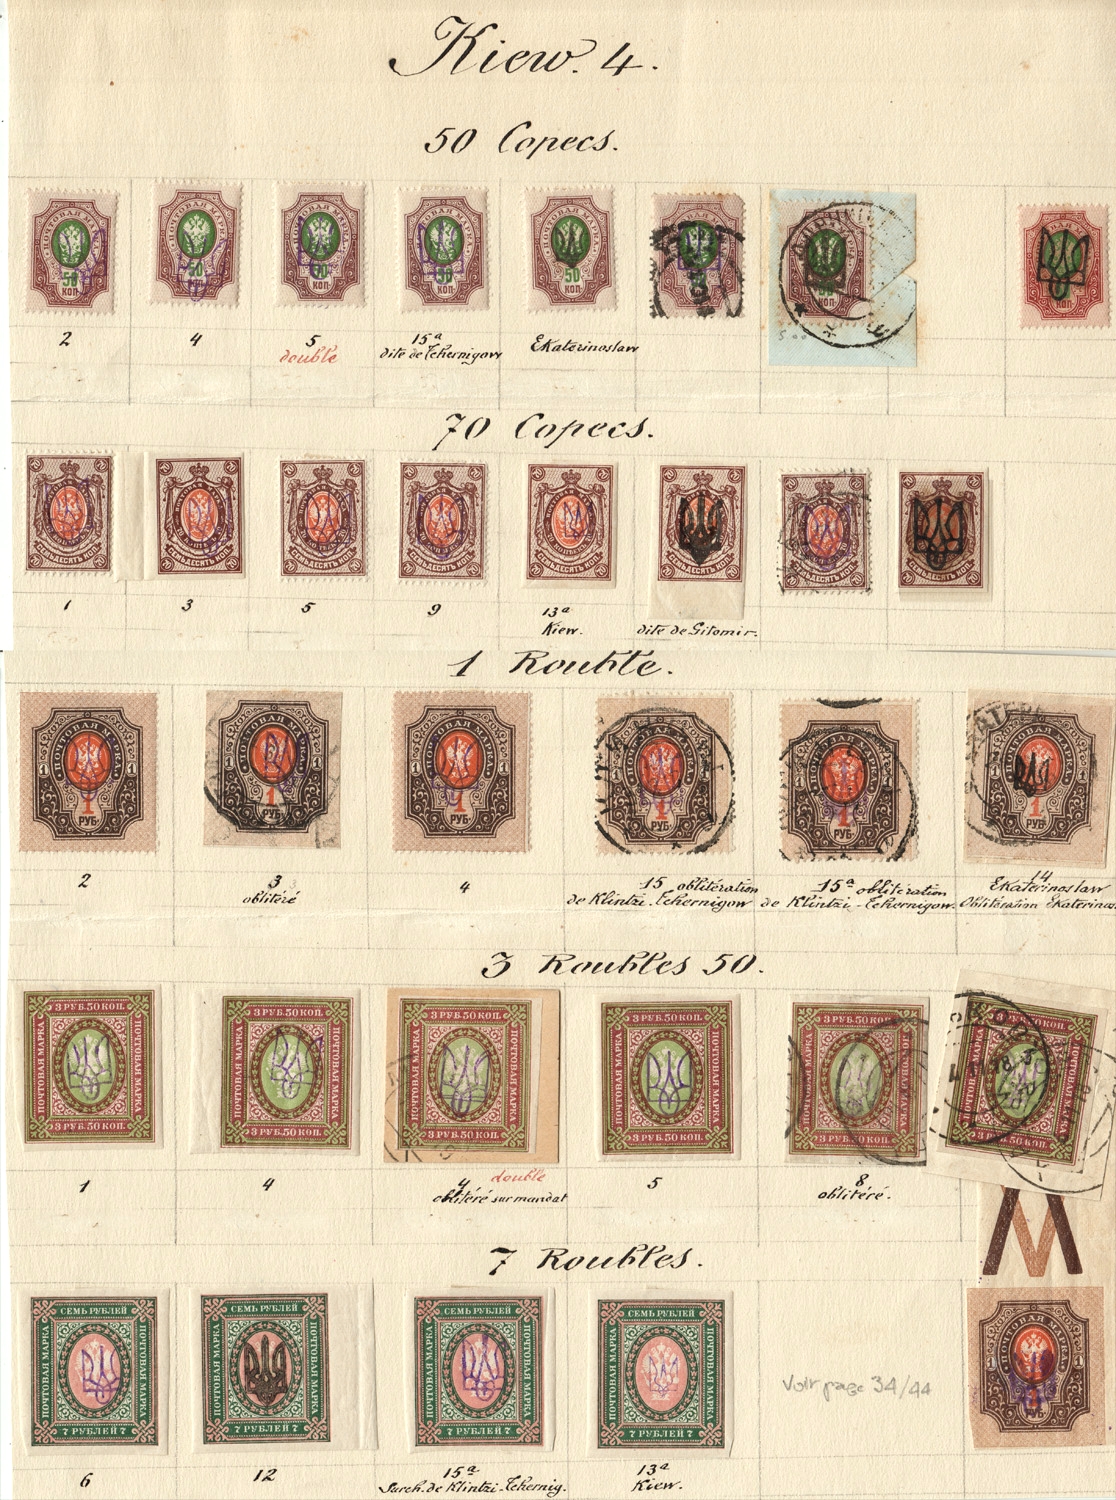 Kiew. 4.
50 Copecs.
ПОЧТОВАЯ МАРКА
50
КОП
2
4
5
double
15ª
dite de Tchernigow
Ekaterinoslaw
500
70 Copecs.
70
СЕМЬДЕСЯТЪ КОП.
1
3
5
9
13ª
Kiew.
dite de Gitomir.
1 Rouble.
ПОЧТОВАЯ МАРКА
1
РУБ
2
3
oblitéré
4
15 oblitération
de Klintzi-Tchernigow
15ª oblitération
de Klintzi-Tchernigow.
14
Ekaterinoslaw
Oblitération Ekaterinos.
3 Roubles 50.
3 РУБ. 50 КОП.
ПОЧТОВАЯ МАРКА
ПОЧТОВАЯ МАРКА
3 РУБ. 50 КОП.
1
4
4 double
oblitéré sur mandat
5
8
oblitéré.
7 Roubles.
СЕМЬ РУБЛЕЙ
ПОЧТОВАЯ МАРКА
ПОЧТОВАЯ МАРКА
7 РУБЛЕЙ 7
Voir page 34/44
6
12
15ª
Surch. de Klintzi-Tchernig.
13ª
Kiew.